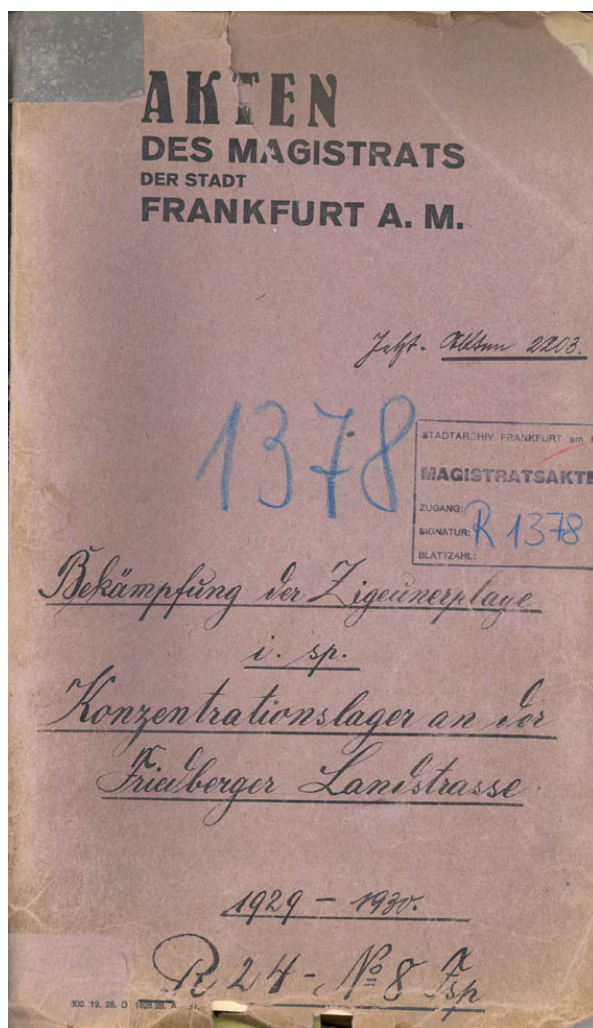 AKTEN
DES MAGISTRATS
DER STADT
FRANKFURT A. M.
Jetzt. Akten 2203.
1378
STADTARCHIV FRANKFURT am
MAGISTRATSAKTE
ZUGANG:
SIGNATUR: R 1378
BLATTZAHL:
Bekämpfung der Zigeunerplage
i. sp.
Konzentrationslager an der
Friedberger Landstrasse
1929 – 1930.
R 24 - № 8
300. 12. 28. D